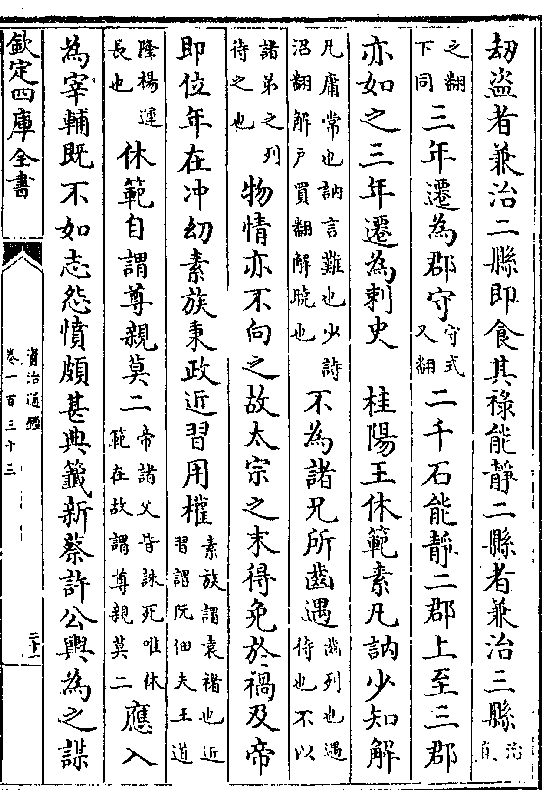 刼盜者兼治二縣即食其祿能靜二縣者兼治三縣治直
之翻下同三年遷為郡守守式又翻二千石能靜二郡上至三郡
亦如之三年遷為刺史　桂陽王休範素凡訥少知解
凡庸常也訥言難也少詩沼翻解戶買翻解曉也不為諸兄所齒遇齒列也遇待也不以
諸弟之列待之也物情亦不向之故太宗之末得免於禍及帝
即位年在冲幼素族秉政近習用權素族謂袁褚也近習謂阮佃夫王道
隆楊運長也休範自謂尊親莫二帝諸父皆誅死唯休範在故謂尊親莫二應入
為宰輔既不如志怨憤頗甚典籤新蔡許公輿為之謀
欽定四庫全書
資治通鑑
卷一百三十三